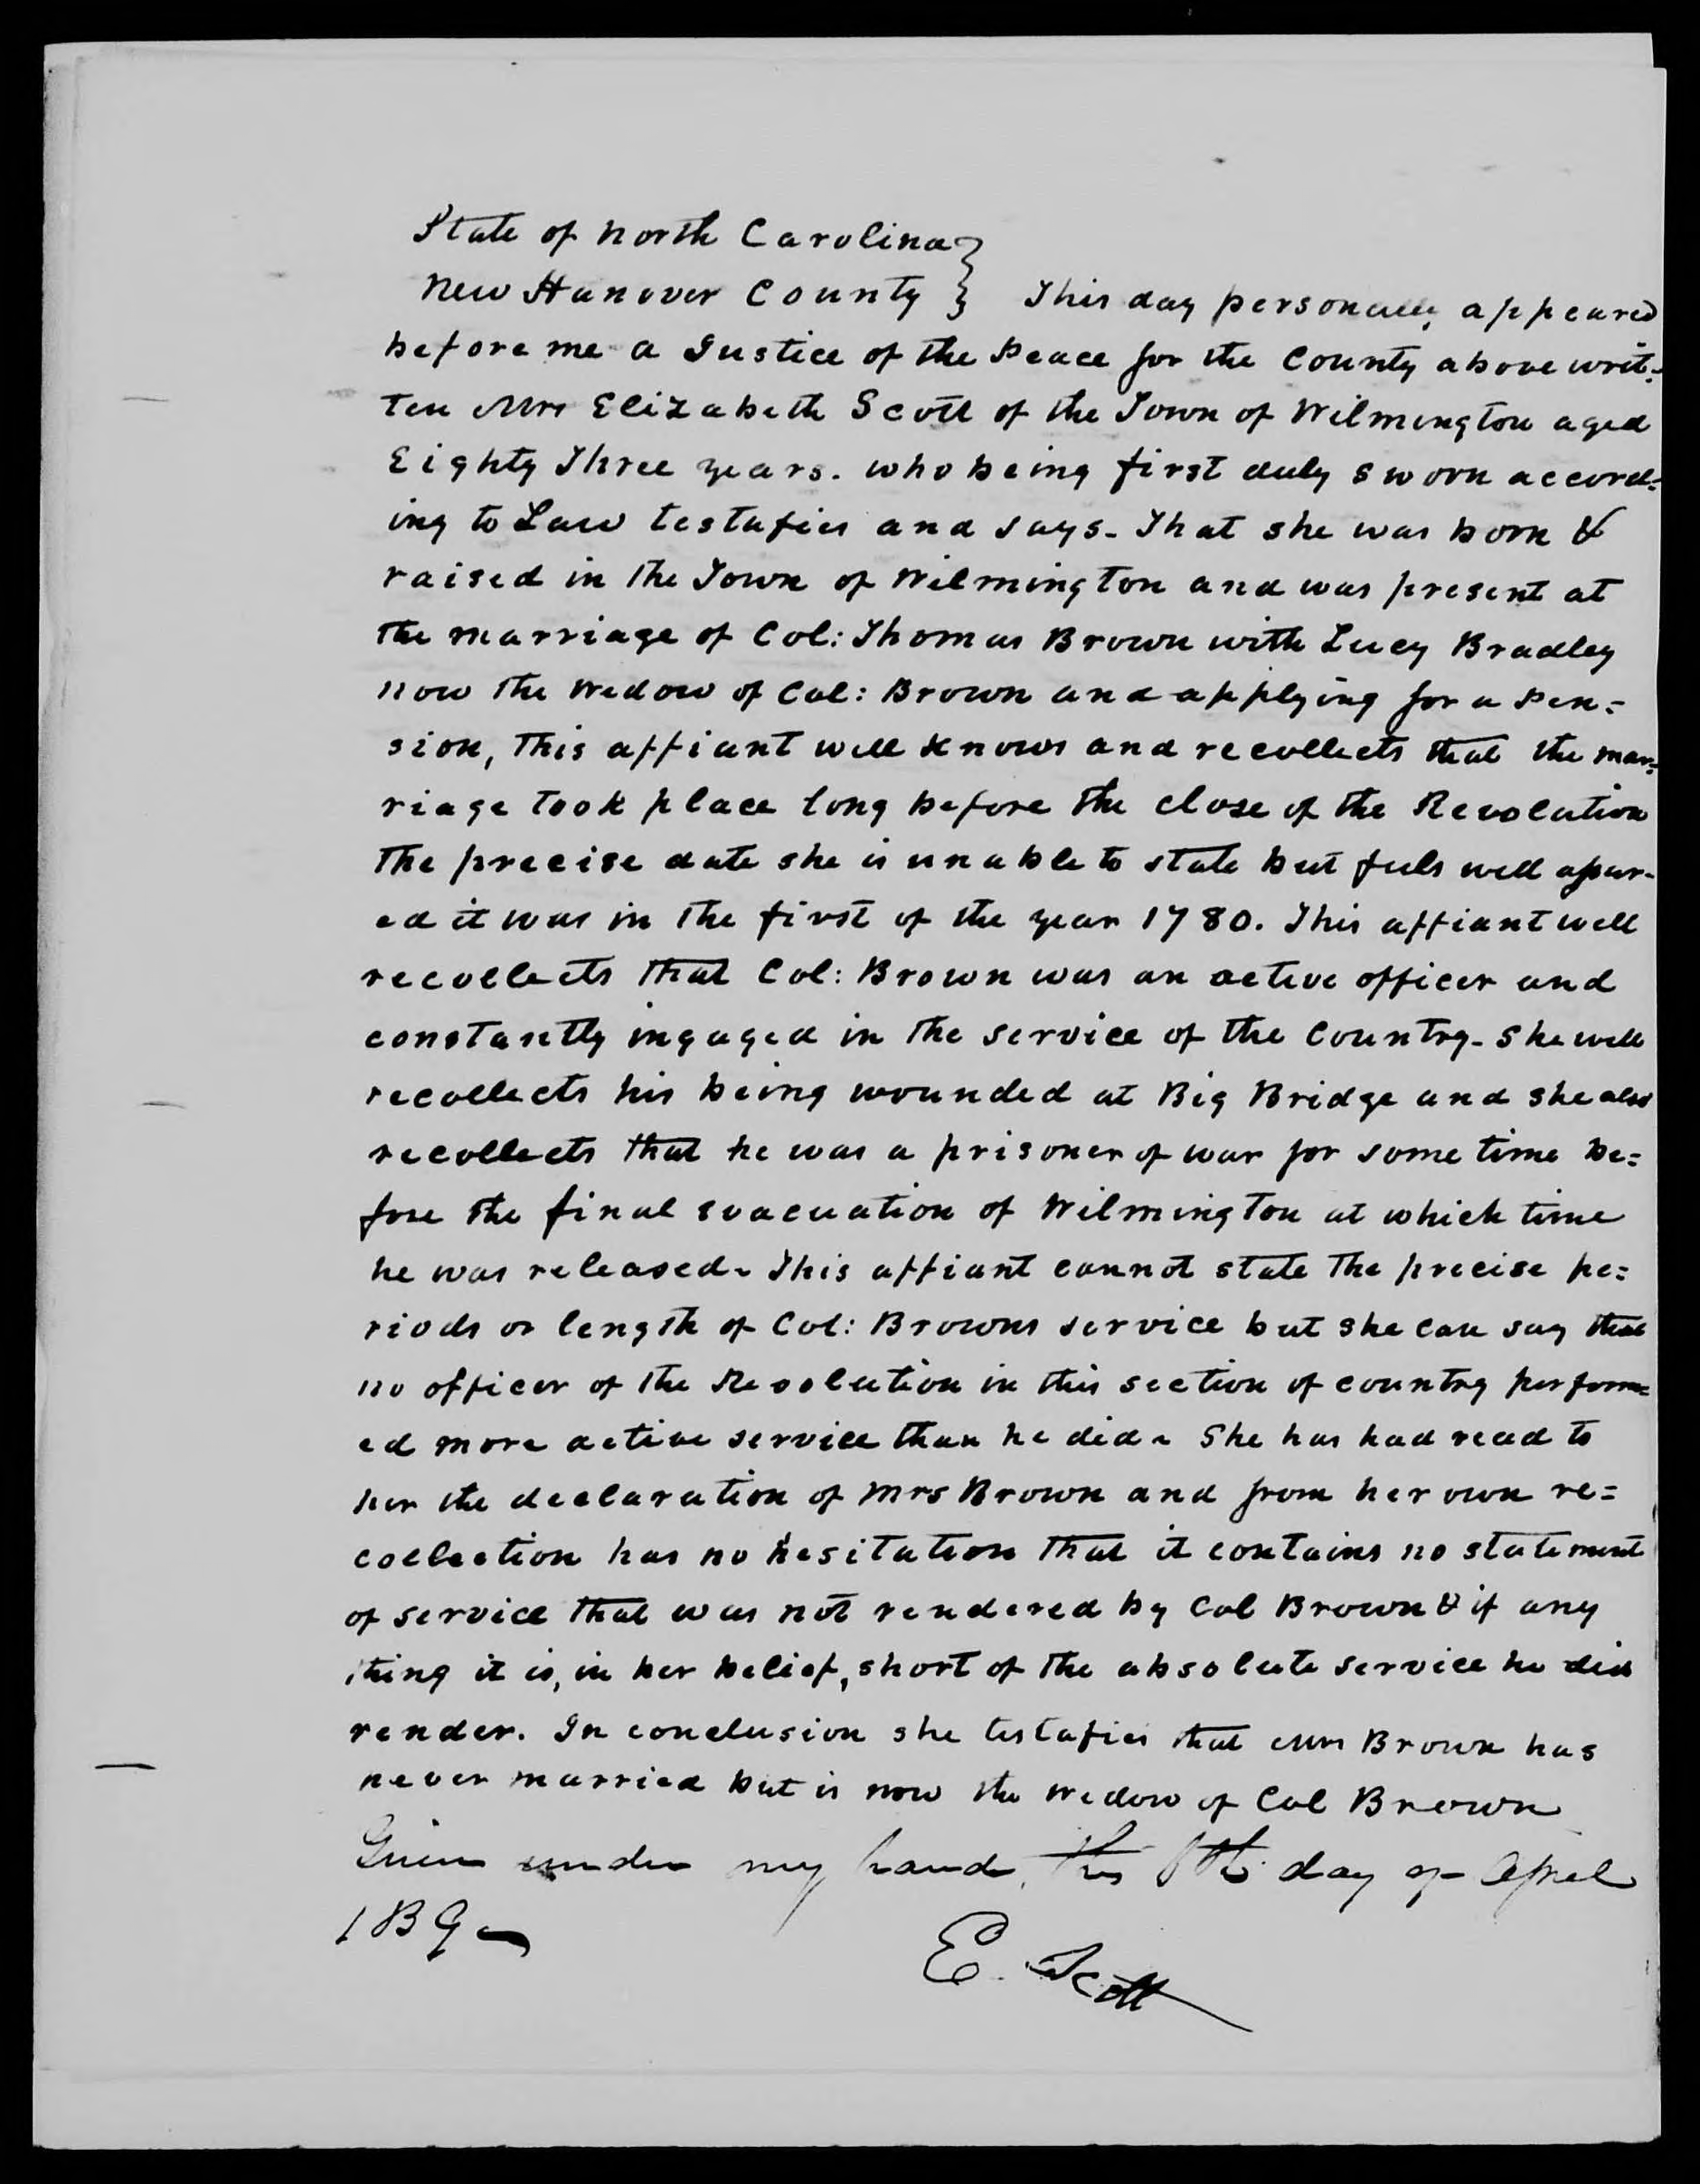 State of North Carolina }
New Hanover County } This day personally appeared
before me a Justice of the Peace for the County above writ=
ten Mrs Elizabeth Scott of the Town of Wilmington aged
Eighty Three years. who being first duly sworn accord=
ing to Law testafies and says. That she was born &
raised in the Town of Wilmington and was present at
the marriage of Col: Thomas Brown with Lucy Bradley
now the Wedow of Col: Brown and applying for a Pen=
sion, This affiant well knows and recollects that the mar=
riage took place long before the close of the Revolution
The precise date she is unable to state but feels well assur-
ed it was in the first of the year 1780. This affiant well
recollects that Col: Brown was an active officer and
constantly ingaged in the service of the Country. She well
recollects his being wounded at Big Bridge and she also
recollects that he was a prisoner of war for some time be=
fore the final evacuation of Wilmington at which time
he was released. This affiant cannot state the precise pe=
riods or length of Col: Browns service but she can say that
no officer of the Revolution in this section of country perform=
ed more active service than he did. She has had read to
her the declaration of Mrs Brown and from her own re=
collection has no hesitation that it contains no statement
of service that was not rendered by Col Brown & if any
thing it is, in her belief, short of the absolute service he did
render. In conclusion she testafies that Mrs Brown has
never married but is now the Wedow of Col Brown
Given under my hand, this day of April
E. Scott